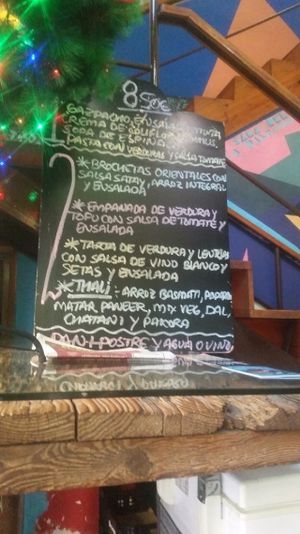 8,50€
1
GAZPACHO, ENSALADA MIXTA,
CREMA DE COLIFLOR, HUMMUS,
SOPA DE ESPINACAS
PASTA CON VERDURAS y SALSA TOMATE
2
*BROCHETAS ORIENTALES CON
SALSA SATAY, ARROZ INTEGRAL
y ENSALADA
*EMPANADA DE VERDURA y
TOFU CON SALSA DE TOMATE y
ENSALADA
*TARTA DE VERDURA y LENTEJAS
CON SALSA DE VINO BLANCO y
SETAS y ENSALADA
*THALI: ARROZ BASMATI,
MATAR PANEER, MIX VEG, DAL,
CHATANI y PAKORA
PAN + POSTRE y AGUA O VINO